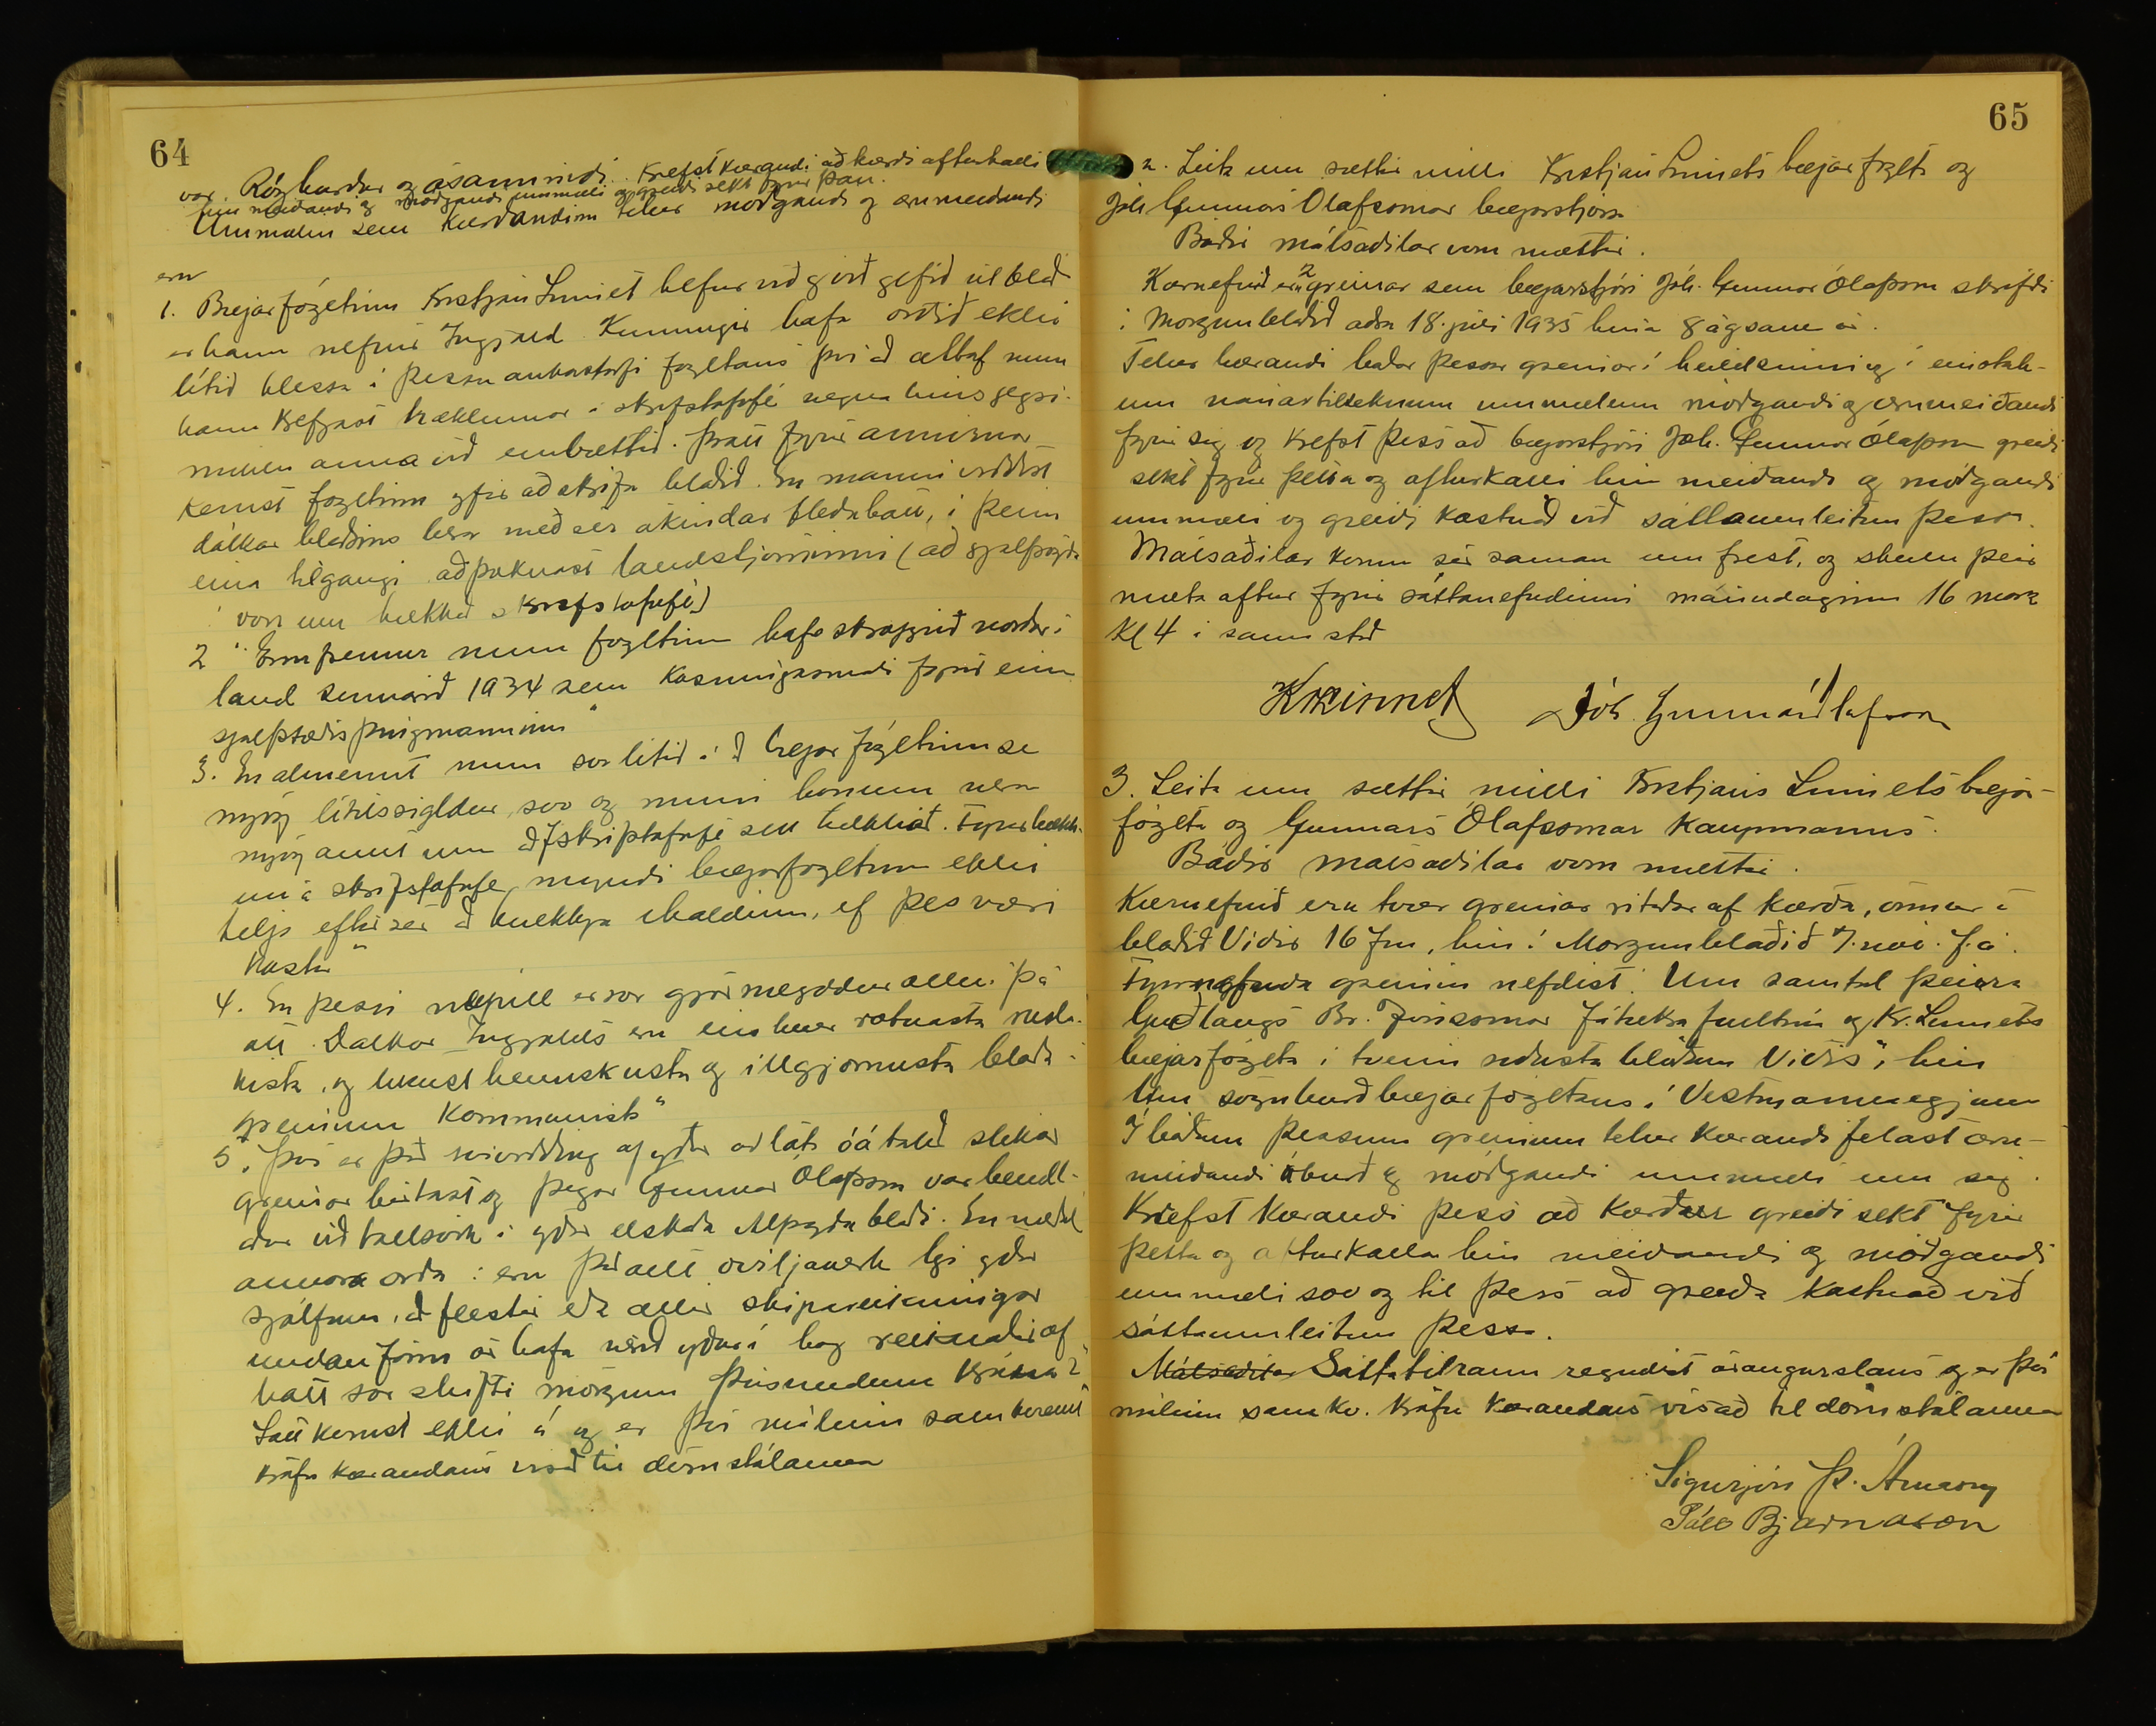 64
var. Rógburdur og ósannindi. Krefst kærandi að kærði afturkalli
hin meiðandi og móðgandi ummæli og greiði sekt fyrir þau.
Ummælin sem kærandinn telur móðgandi og ærumeiðandi
eru
1. Bæjarfógetinn Kristján Linnet hefur nú gjört gefið út blað
er hann nefnir Ingjald. Kunnugir hafa orðið ekki
lítið hlessa á þessu aukastarfi fogetans því að altaf mun
hann krefjast hækkunar á skrifstofufé vegna hins gegsi-
miklu anna við embættið. Þrátt fyrir annirnar
kemst fogetinn yfir að skrifa blaðið. En manni virðist
dálkar blaðsins bera með sér ákindar fleðuhátt, í þeim
eina tilgangi að þóknast landstjórninni (að sjálfsögðu
í von um hækkað skrifstofufé)
2 " Ennfremur mun fogetinn hafa skroppið norður í
land sumarið 1934 sem kosningasmali fyrir einn
sjálfstæðisþingmanninn"
3. En almennt mun svo litið á að bæjarfógetinn sé
nægj lítilssigldur, svo og muni honum vera
nægj annt um að skrifstofufé sitt hækkað. Fyrir hækk-
un á skrifstofufé myndi bæjarfogetinn ekki
telja eftir sér að hnekkja íhaldinu, ef þess væri
kostur"
4. En þessi náungi er svo gjörmegddur allri þá
átt. Dálkar Ingjalds eru eins hver rotnasta ruslakista
kista, og hverst heimskusta og illgjörnusta blaða-
greinum kommunista"
5. Því er það svívirðing af yður að láta óátalið slíkar
greinar birtast og þegar Gunnar Ólafsson var bendl-
aður við tollsvik í yðar elskaða Alþýðublaði. En með
annara orða: eru það allt óviljaverk hjá yður
sjálfum, að flestir eða allir skipareikningar
undanfarin ár hafa verið yður í hag reiknaðir af
hátt svo skipti mörgum þúsundum króna?"
Sátt komst ekki á og er því málinu samkvæmt
kröfu kærandans vísað til dómstólanna
65
2. Leita um sættir milli Kristján Linnets bæjarfógeta og
Jóh Gunnars Ólafssonar bæjarstjóra
Báðir málsaðilar voru mættir.
Kæruefnið eru 2 greinar sem bæjarstjóri Jóh. Gunnar Ólafsson skrifði
í Morgunblaðið aðra 18. júlí 1935 hina 8 ágs ár.
Telur kærandi báðar þessar greinar í heild sinni og í einstök-
um nánar tilteknum ummælum móðgandi og ærumeiðandi
fyrir sig og krefst þess að bæjarstjóri Joh. Gunnar Ólafsson greiði
sekt fyrir þetta og afturkalli hin meiðandi og móðgandi
ummæli og greiði kostnað við sáttaumleitun þessa.
Málsaðilar komu sér saman um frest, og skulu þeir
mæta aftur fyrir sáttanefndinni mánudaginn 16 marz
Kl 4 á sama stað
KrLinnet Jóh. Gunnar Ólafsson
3. Leita um sættir milli Kristjáns Linnets bæjar-
fógeta og Gunnars Ólafssonar kaupmanns.
Báðir málsaðilar voru mættir.
Kæruefnið eru tvær greinar ritaðar af kærða, önnur í
blaðið Vísir 16 f.m, hin í Morgunblaðið 7. nóv. f. á.
Fyrrnefnda greinin nefdist: Um samtal þeirra
Guðlaugs Br. Jónssonar fátækrafulltrúa og Kr. Linnets
bæjarfógeta í tveim síðustu blöðum Vísis", hin
Um sögnburð bæjarfógetans í Vestmannaeyjum
Í báðum þessum greinum telur kærandi felast æru-
meiðandi áburð og móðgandi ummæli um sig.
Krefst kærandi þess að kærður greiði sekt fyrir
þetta og afturkalla hin meiðandi og móðgandi
ummæli svo og til þess að greiða kostnað við
sáttaumleitun þessa.
Málsaðilar Sáttatilraun reyndist árangurslaus og er því
málinu samkv. kröfu kærandans vísað til dómstólanna
Sigurjón Þ. Árnason
Páll Bjarnason